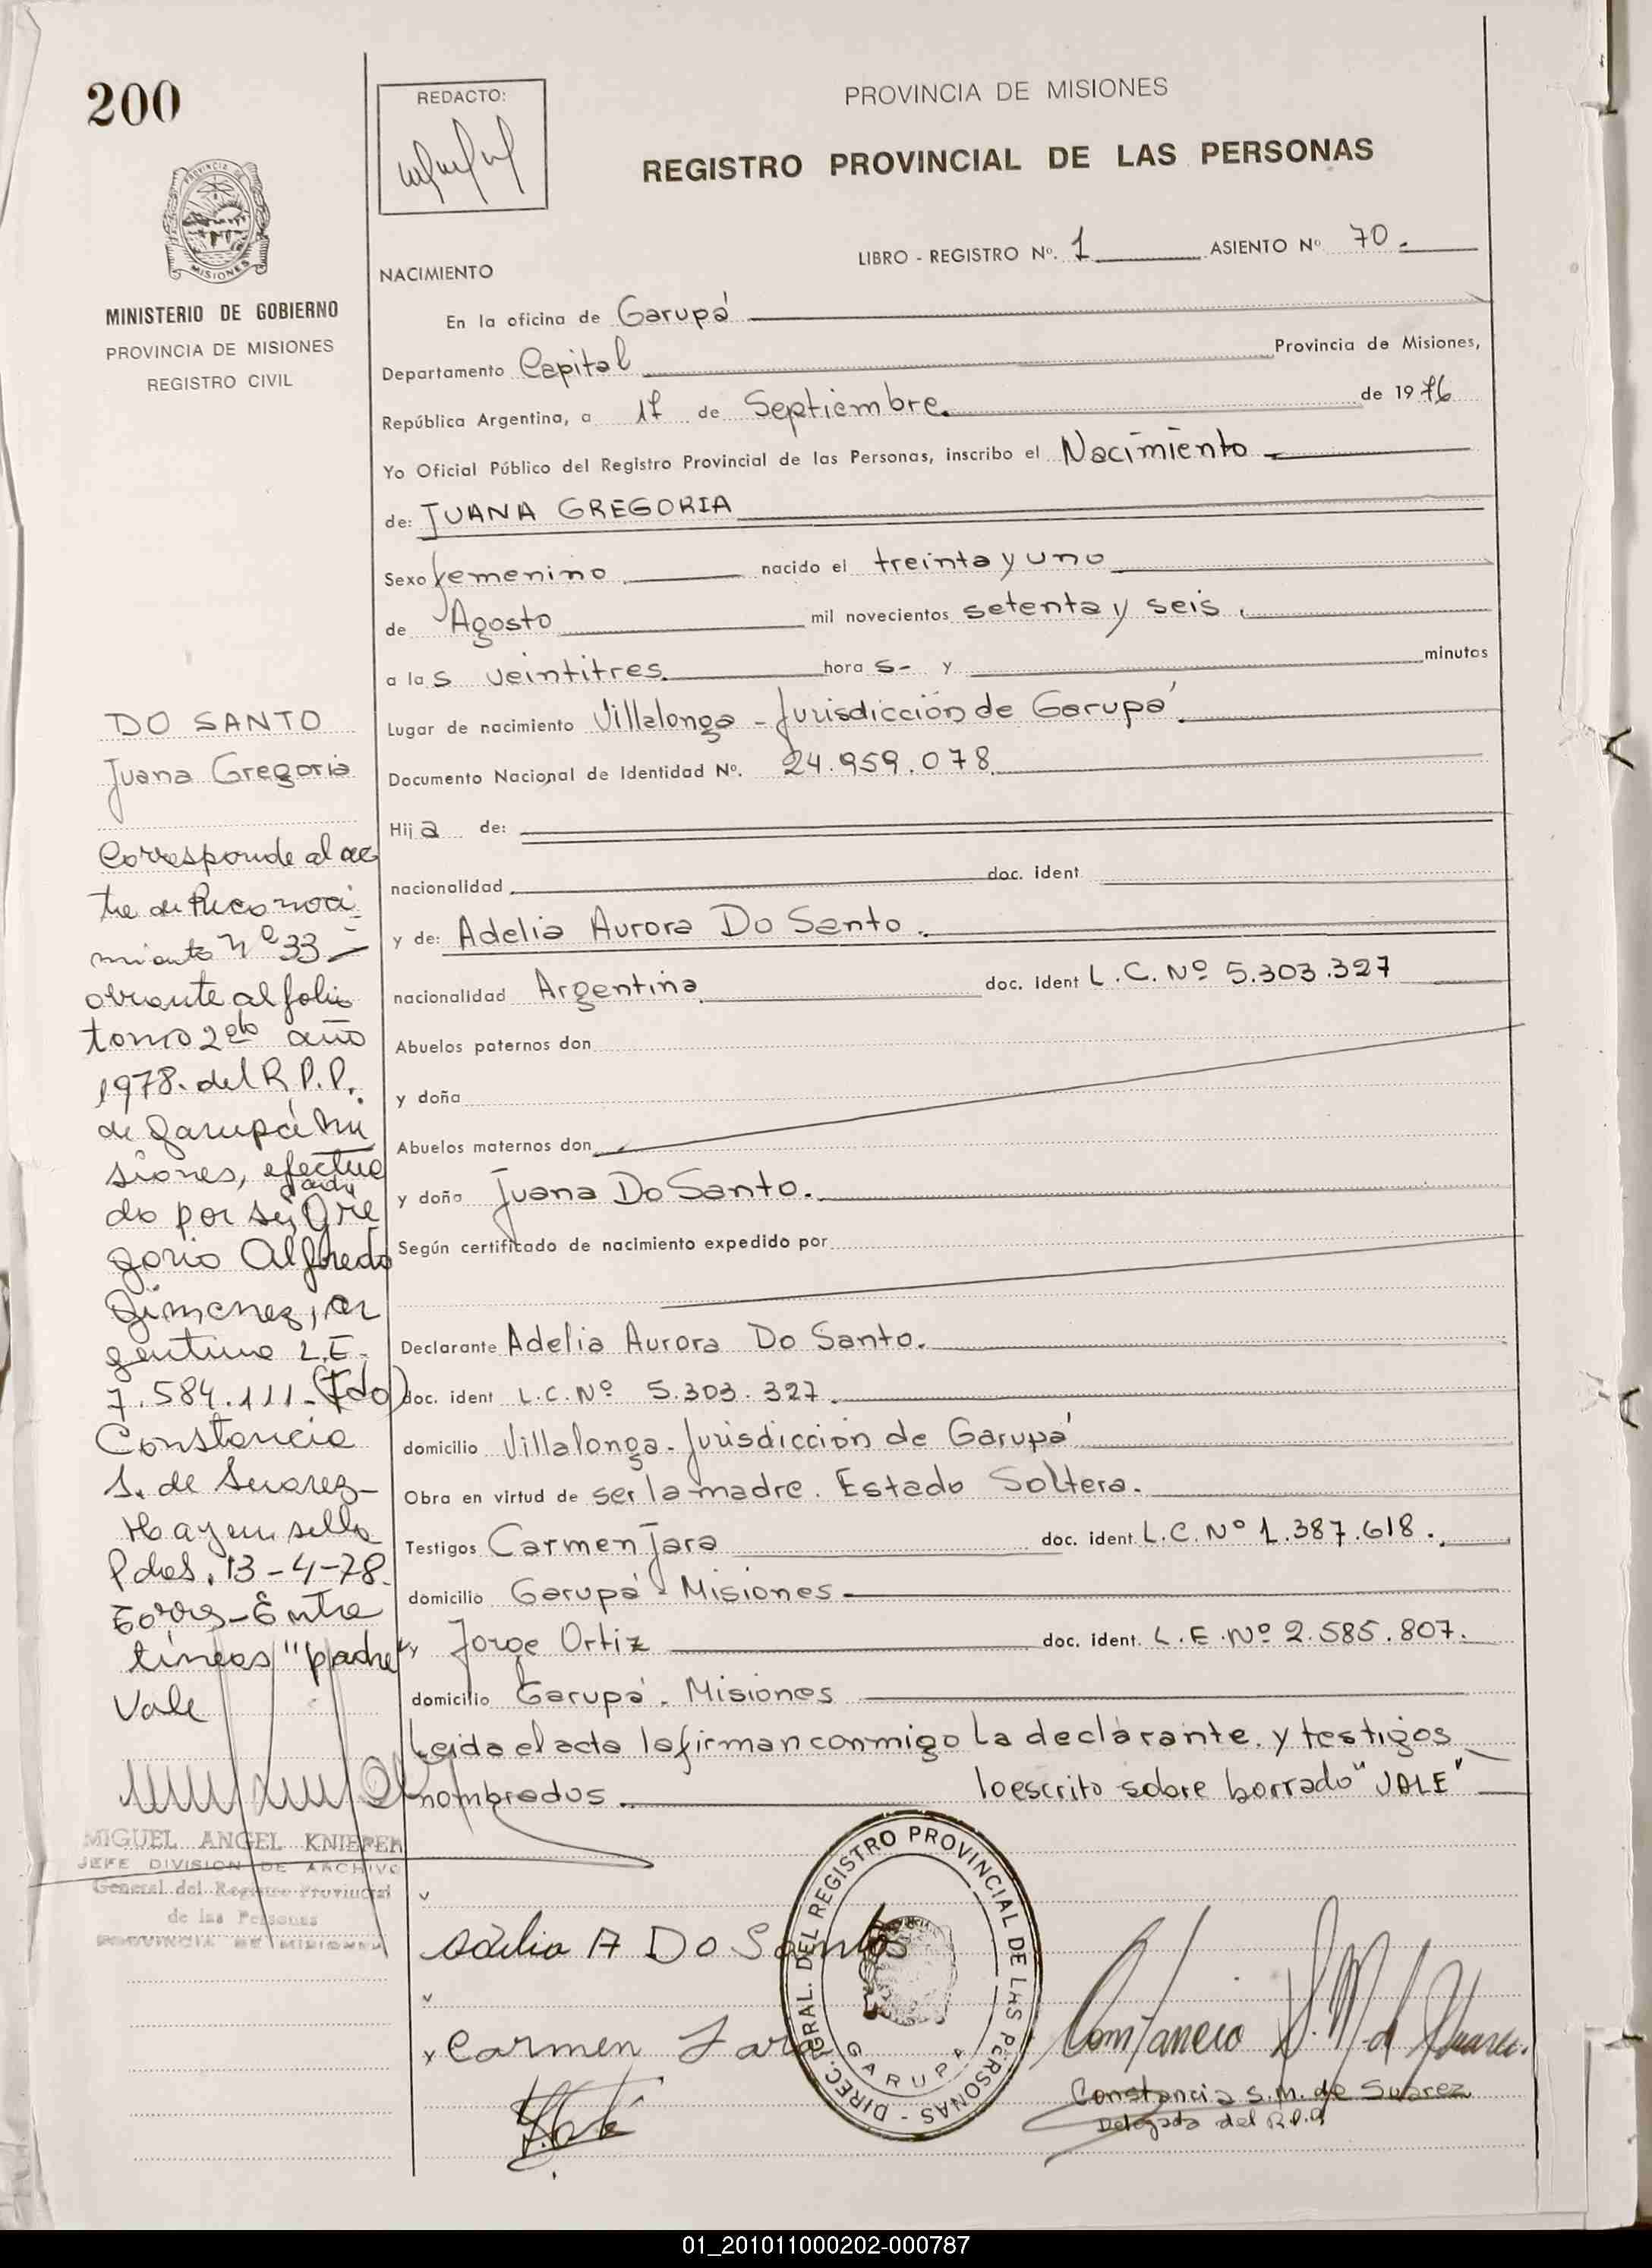 200
PROVINCIA DE
MISIONES
MINISTERIO DE GOBIERNO
PROVINCIA DE MISIONES
REGISTRO CIVIL
REDACTO:
PROVINCIA DE MISIONES
REGISTRO PROVINCIAL DE LAS PERSONAS
LIBRO - REGISTRO Nº. 1 ASIENTO Nº 70.
NACIMIENTO
En la oficina de Garupá
Departamento Capital Provincia de Misiones,
República Argentina, a 17 de Septiembre. de 1976
Yo Oficial Público del Registro Provincial de las Personas, inscribo el Nacimiento
de: JUANA GREGORIA
Sexo femenino nacido el treinta y uno
de Agosto mil novecientos setenta y seis.
a las veintitres. hora s- y minutos
Lugar de nacimiento Villalonga - Jurisdicción de Garupá
Documento Nacional de Identidad Nº. 24.959.078
Hija de:
nacionalidad doc. ident
y de: Adelia Aurora Do Santo.
nacionalidad Argentina doc. ident L.C. Nº 5.303.327
Abuelos paternos don
y doña
Abuelos maternos don
y doña Juana Do Santo.
Según certificado de nacimiento expedido por
Declarante Adelia Aurora Do Santo.
doc. ident L.C. Nº 5.303.327
domicilio Villalonga - Jurisdicción de Garupá
Obra en virtud de ser la madre. Estado Soltera.
Testigos Carmen Jara doc. ident. L.C. Nº 1.387.618.
domicilio Garupá - Misiones
y Jorge Ortiz doc. ident. L.E. Nº 2.585.807.
domicilio Garupá - Misiones
Leida el acta la firman conmigo la declarante y testigos
nombrados. lo escrito sobre borrado "VALE"
DO SANTO
Juana Gregoria
Corresponde al ac
ta de Reconoci
miento Nº 33
obrante al folio
tomo 2do año
1978. del R.P.P.
de Garupá Mi
siones, efectua
padre
do por su Gre
gorio Alfredo
Gimenez, ar
gentino L.E.
7.584.111 - (Fdo)
Constancia
S. de Suarez -
Hay un sello
Pdas. 13-4-78.
Entre
líneas "padre"
Vale
MIGUEL ANGEL KNIEPER
JEFE DIVISION DE ARCHIVO
General del Registro Provincial
de las Personas
PROVINCIA DE MISIONES
Adelia A Do Santos
Carmen Jara
DIREC. GRAL. DEL REGISTRO PROVINCIAL DE LAS PERSONAS -
GARUPA
Constancia S. M. de Suarez.
Constancia S.M. de Suarez
Delegada del R.P.P.
01_201011000202-000787